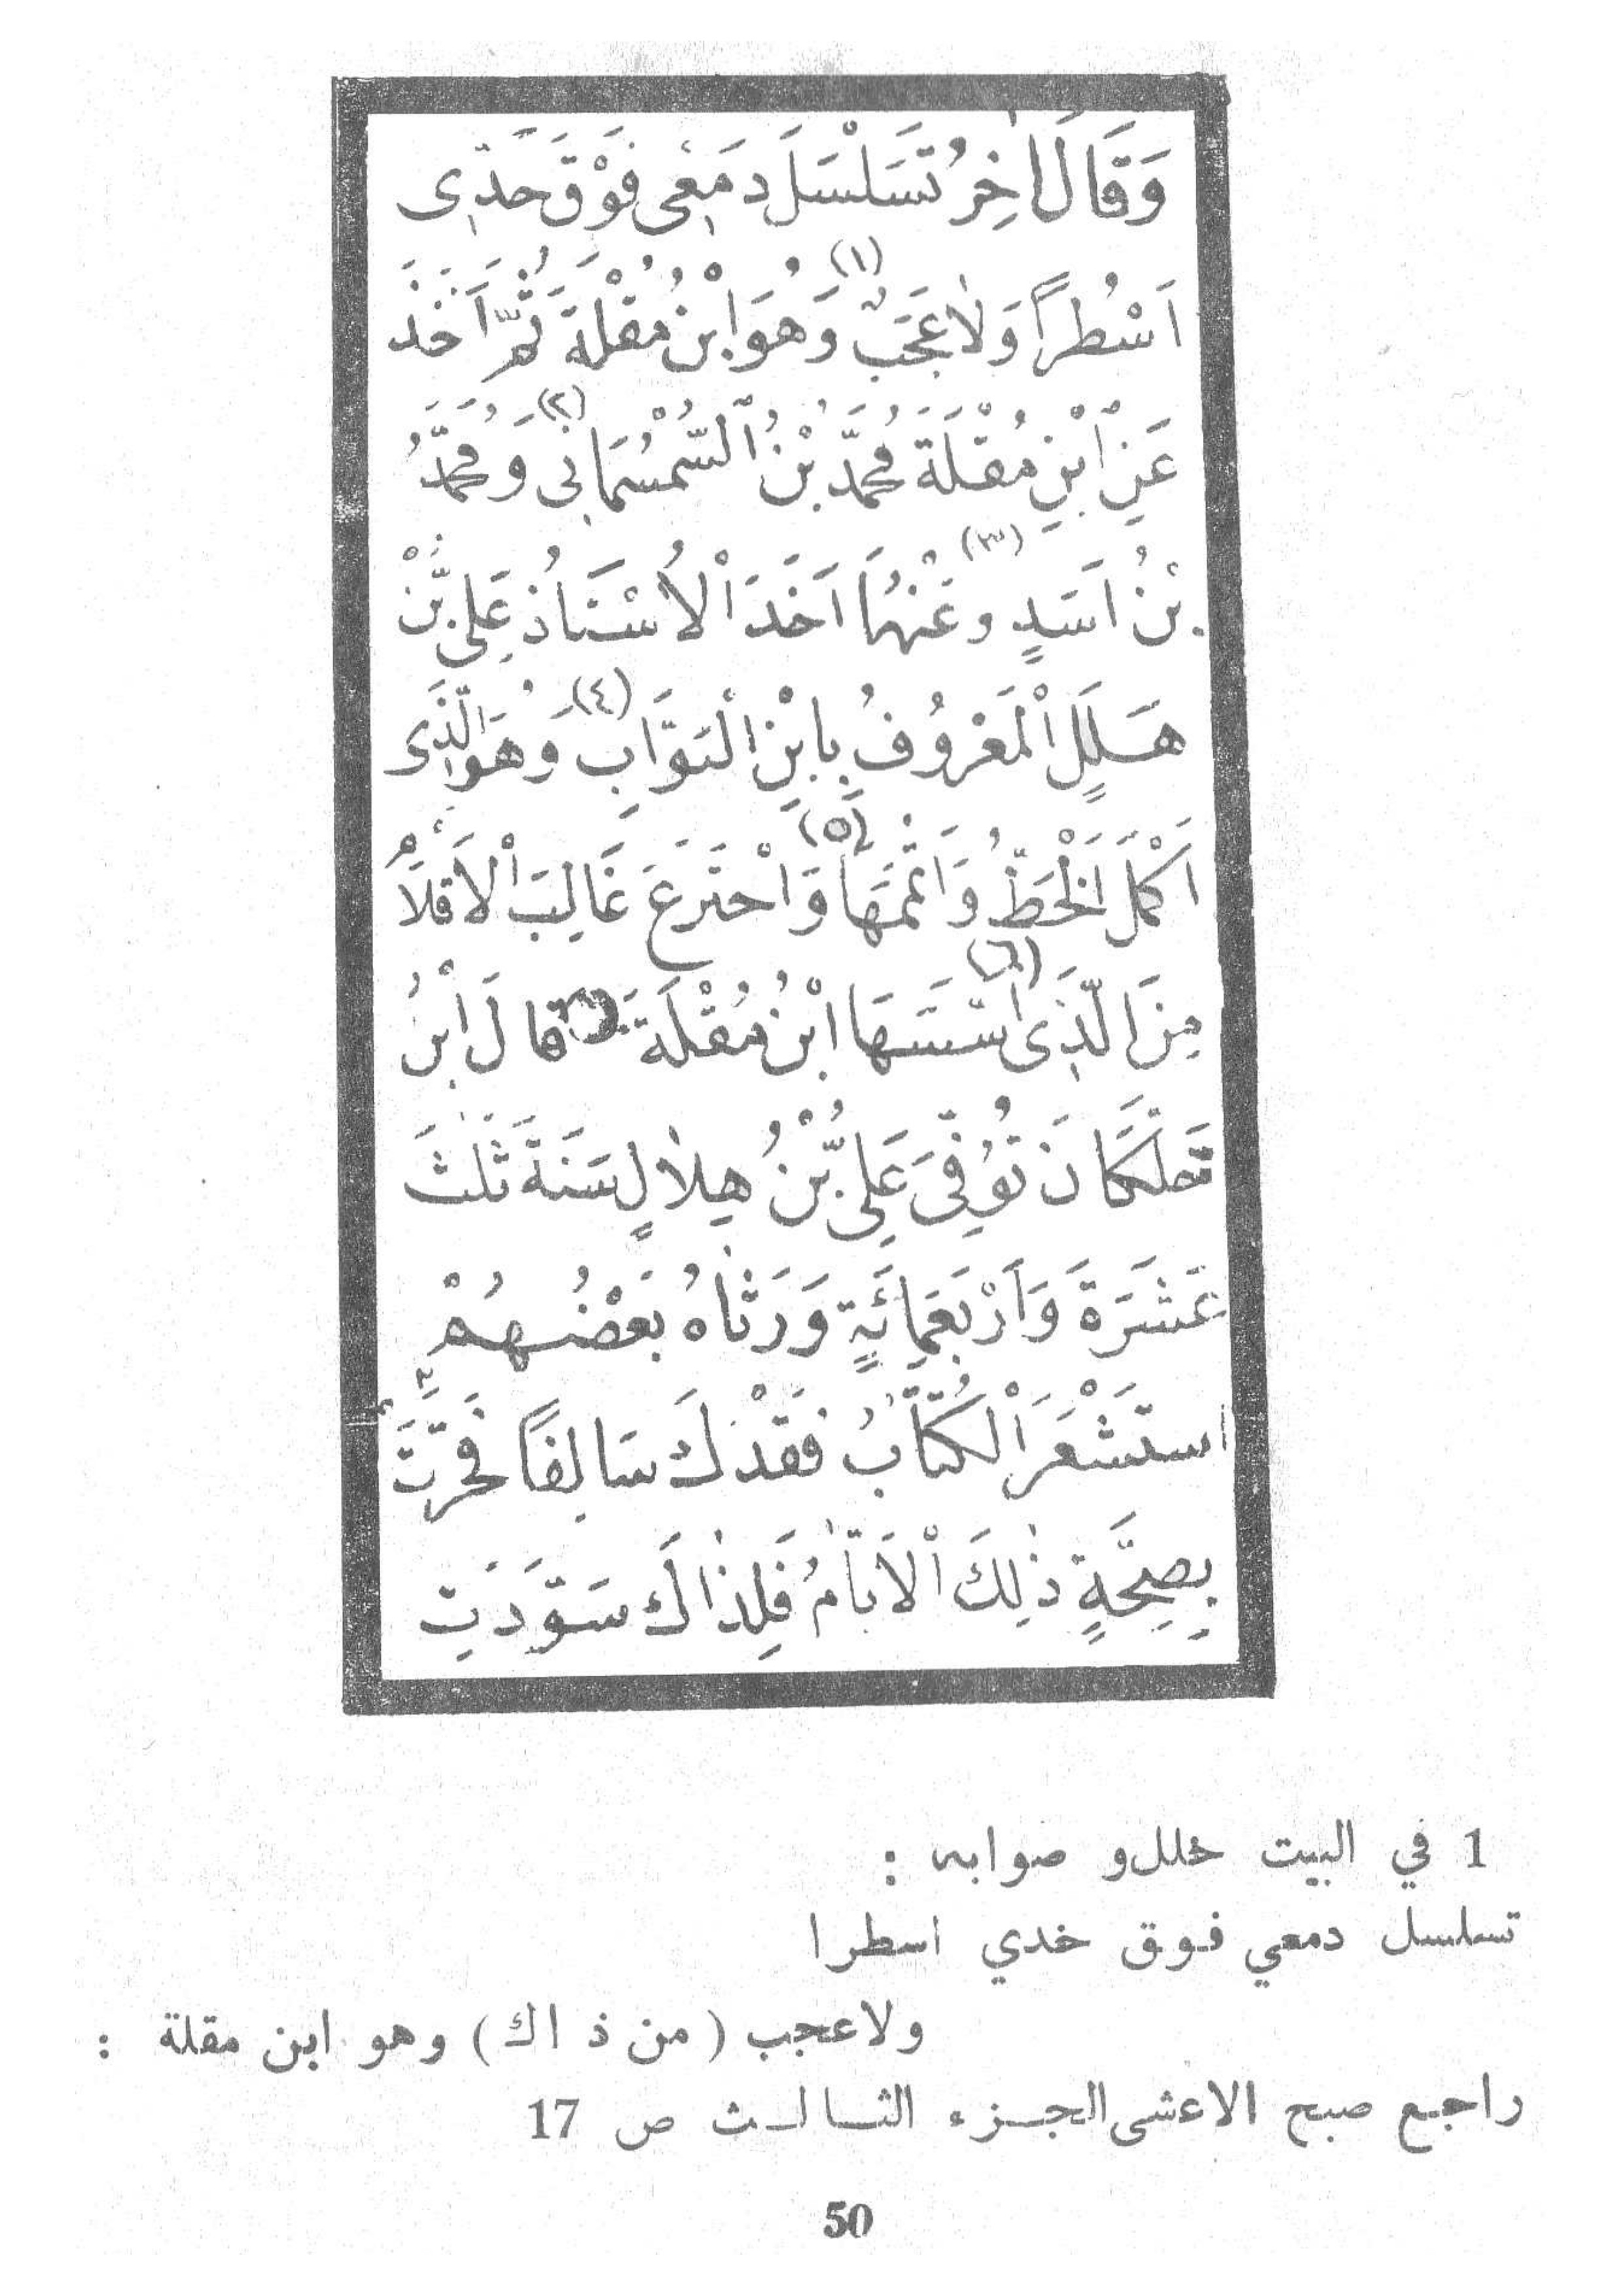 وَقَالَ اٰخِرُ تَسَلْسَلَ دَمْعِى فَوْقَ حَدّى
اَسْطُراً وَلاٰعَجَبٌ (١) وَهُوَ ابْنُ مُقْلَةَ ثُمَّ اَخَذَ
عَنِ ابْنِ مُقْلَةَ مُحَمَّدُ بْنُ السُّمْسُمَانِى (٢) وَمُحَمَّدُ
بْنُ اَسَدٍ (٣) وعَنْهُمَا اَخَذَ اْلاُسْتَاذُ عَلِىُّ بْنُ
هَلَلٍ الْمَعْرُوفُ بِابْنِ الْبَوَّابِ (٤) وَهُوَ الَّذِى
اَكْمَلَ الْخَطَّ وَاَتْمَمَهَا (٥) وَاحْتَرَعَ غَالِبَ اْلاَقْلَامْ
مِنَ الَّذِى اسَّسَهَا (٦) ابْنُ مُقْلَةَ قالَ ابْنُ
خلكَانَ تُوُفِّىَ عَلِىُّ بْنُ هِلاٰلٍ سَنَةَ ثَلٰثَ
عَشَرَةَ وَاَرْبَعِمِائَةٍ وَرَثٰاهُ بَعْضُهُمْ
استَشْعَرَ اْلكُتّابُ فَقْدَكَ سَالِفًا فَجَرَتْ
بِصِحَّةِ ذٰلِكَ اْلاَيّامُ فَلِذٰاكَ سَوَّدَتِ
1 في البيت خلل و صوابه :
تسلسل دمعي فوق خدي اسطرا
ولاعجب (من ذ اك) وهو ابن مقلة :
راجع صبح الاعشى الجزء الثالث ص 17
50